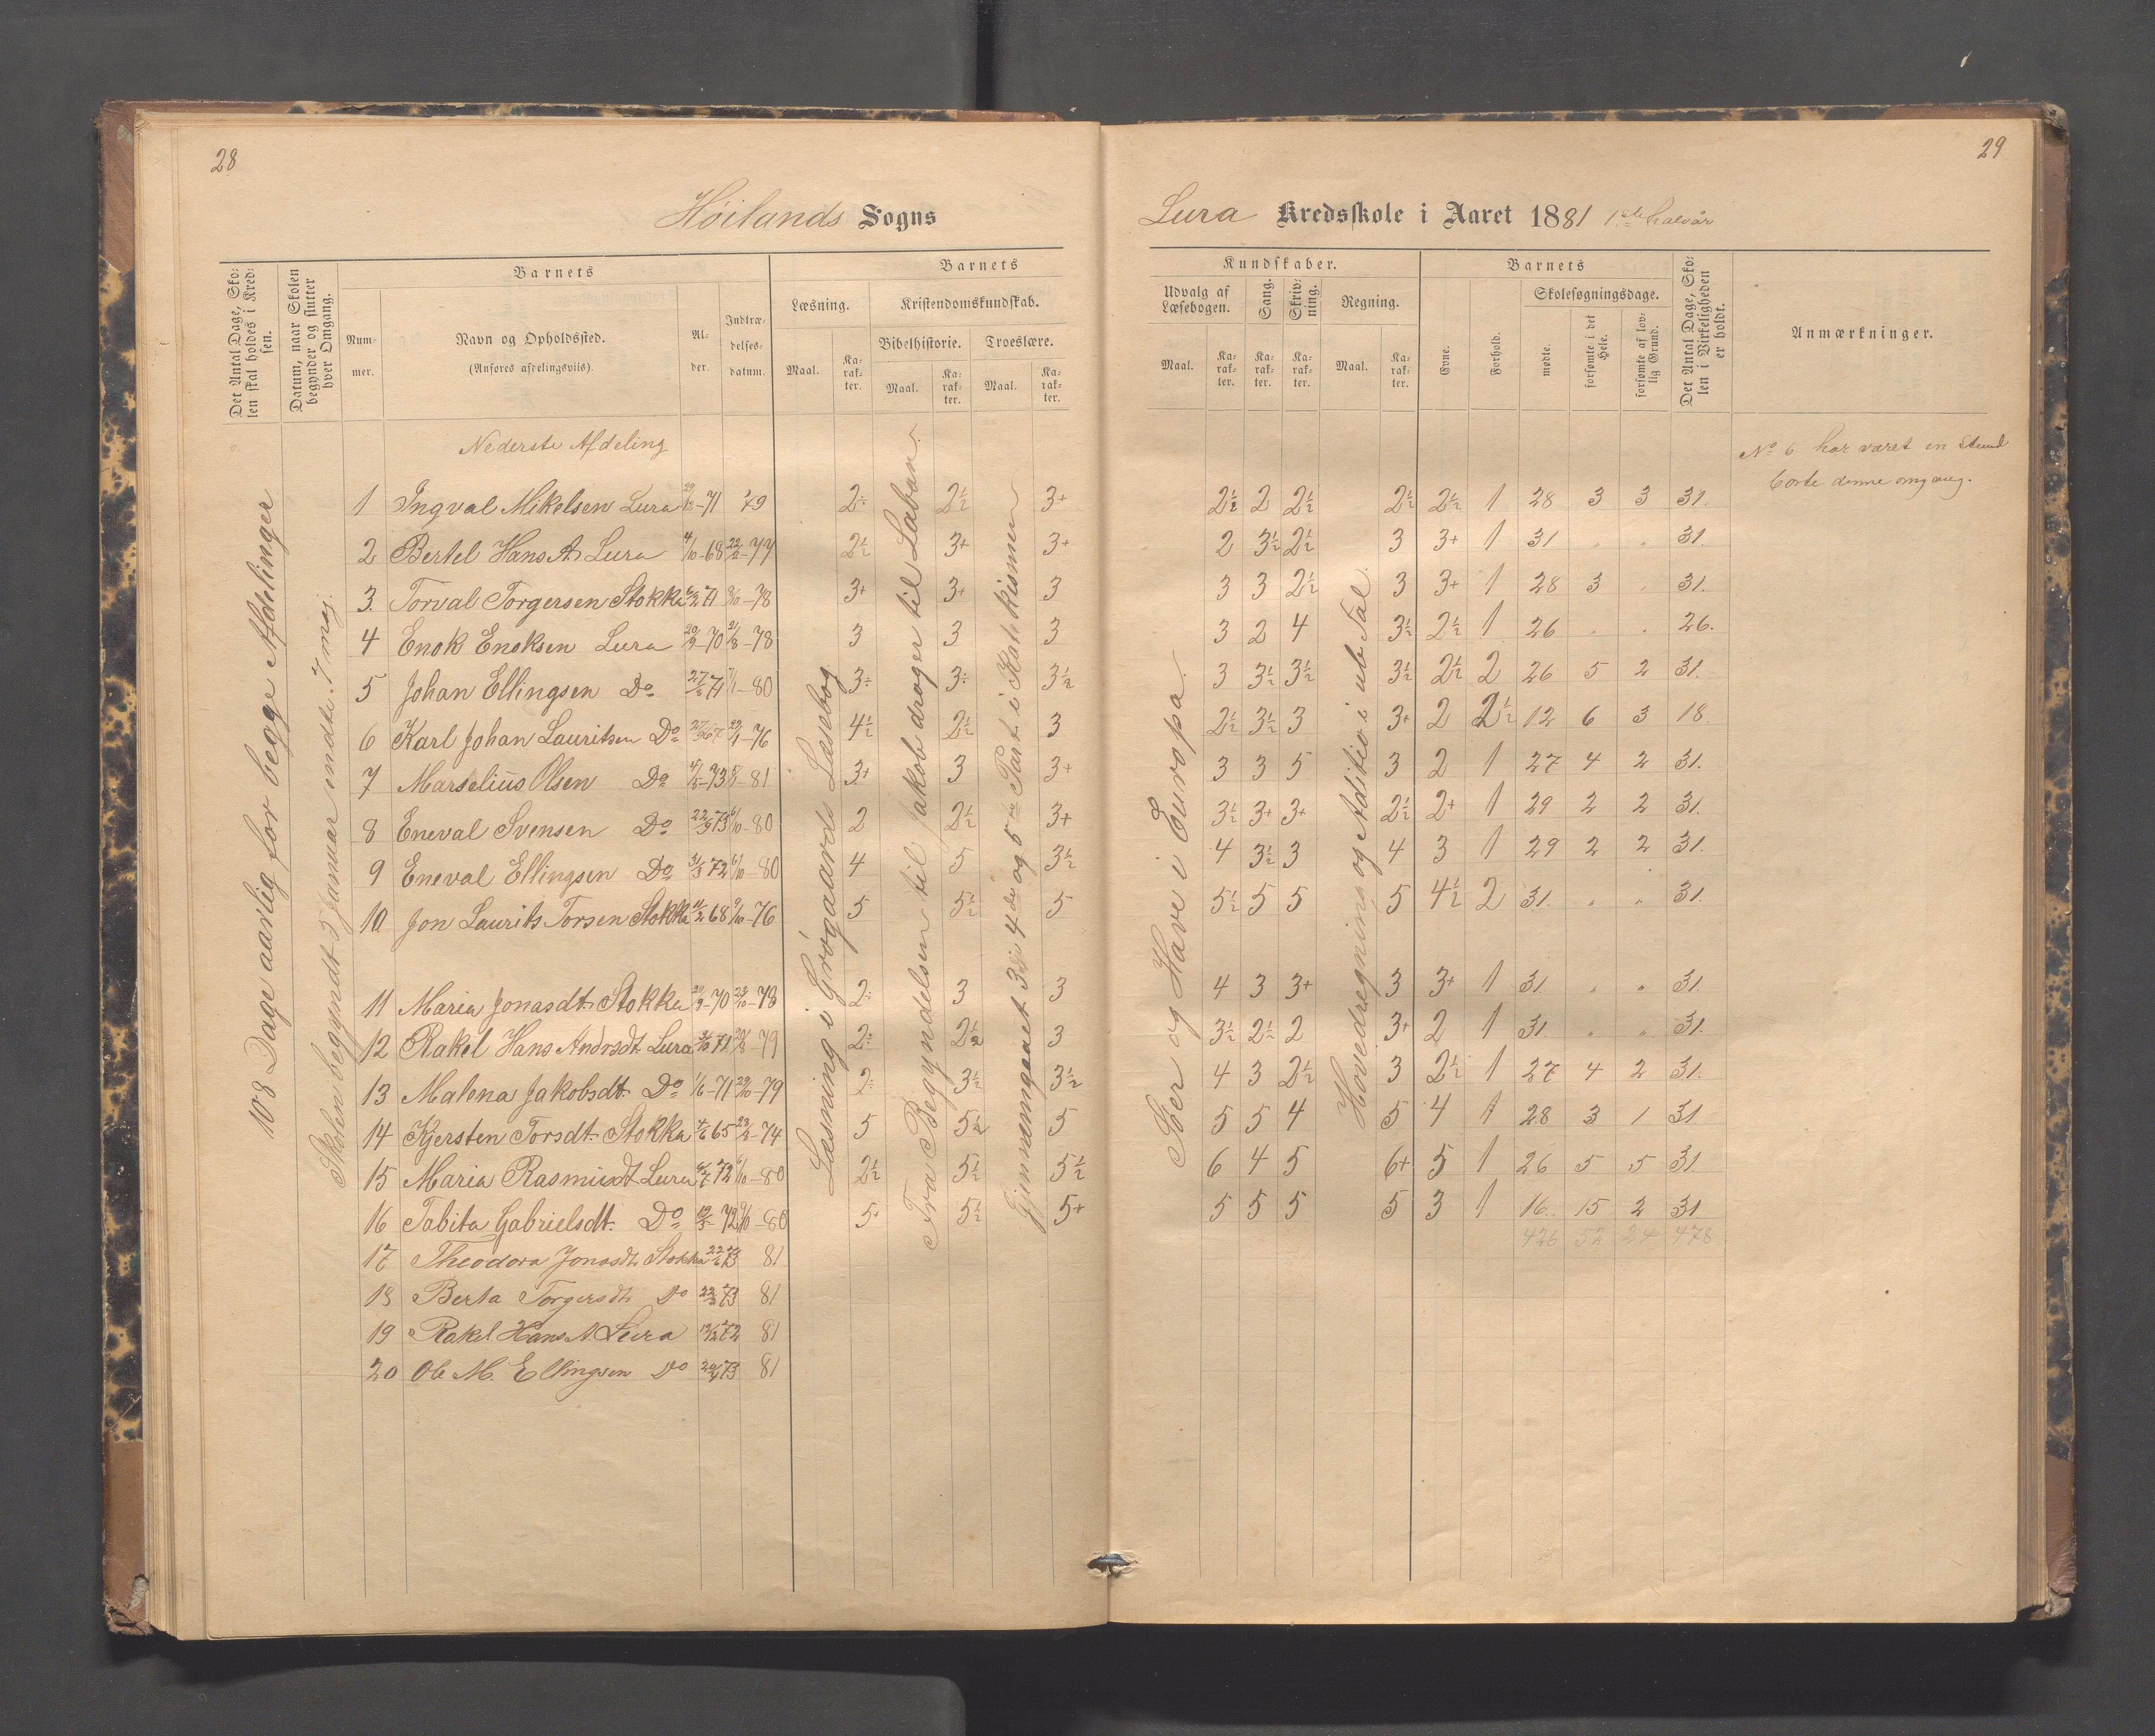 28
Høilands Sogns
Det Antal Dage, Sko-
len skal holdes i Kred-
sen.
Datum, naar Skolen
begynder og slutter
hver Omgang.
Barnets
Num-
mer.
Navn og Opholdssted.
(Anføres afdelingsviis).
Al-
der.
Indtræ-
delses-
datum.
Barnets
Læsning.
Maal.
Ka-
rak-
ter.
Kristendomskundskab.
Bibelhistorie.
Maal.
Ka-
rak-
ter.
Troeslære.
Maal.
Ka-
rak-
ter.
108 Dage aarlig for begge Afdelinger
Skolen begyndt 3 Januar endte 7 maj.
Læsning i Grøgaards Læsebog
Fra Begyndelsen til Jakob drager til Laban.
Gjennemgaaet 3die 4de og 5te Part i Katekismen
Nederste Afdeling
1 Ingval Mikelsen Lura -71 79 2÷ 2½ 3+
2 Bertel Hans A. Lura 4/10-68 -77 2½ 3+ 3+
3. Torval Torgersen Stokka 71 -78 3+ 3+ 3
4 Enok Enoksen Lura 20/9-70 -78 3 3 3
5 Johan Ellingsen Do 71 -80 3÷ 3÷ 3½
6 Karl Johan Lauritsen Do 67 -76 4½ 2½ 3
7 Marselius Olsen Do -73 -81 3+ 3 3+
8 Eneval Svensen Do 22/9 73 6/10-80 2 2½ 3+
9 Eneval Ellingsen Do 31/3 72 6/10-80 4 5 3½
10 Jon Laurits Torsen Stokka 11/2 68 9/10-76 5 5½ 5
11 Maria Jonasdt. Stokka 20/9-70 23/10-78 2÷ 3 3
12 Rakel Hans Andrsdt. Lura 71 20/8-79 2÷ 2½ 3
13 Malena Jakobsdt. Do 1/6-71 -79 2÷ 3½ 3½
14 Kjersten Torsdt. Stokka 4/6 65 -74 5 5½ 5
15 Maria Rasmusdt. Lura 72 6/10-80 2½ 5½ 5½
16 Tabita Gabrielsdt. Do 72 6/10-80 5+ 5½ 5+
17 Theodora Jonasdt. Stokka 22/6 73 81
18 Berta Torgersdt. Do 73 81
19 Rakel Hans A. Lura 72 81
20 Ole M. Ellingsen Do 73 81
29
Lura Kredsskole i Aaret 1881 1ste halvår
Kundskaber.
Udvalg af
Læsebogen.
Maal.
Ka-
rak-
ter.
Sang.
Ka-
rak-
ter.
Skriv-
ning.
Ka-
rak-
ter.
Regning.
Maal.
Ka-
rak-
ter.
Barnets
Evne.
Forhold.
Skolesøgningsdage.
mødte.
forsømte i det
Hele.
forsømte af lov-
lig Grund.
Det Antal Dage, Sko-
len i Virkeligheden
er holdt.
Anmærkninger.
Søer og Have i Europa.
Hovedregning og Aditio i ub Tal.
No 6 har været en stund
borte denne omgang.
2½ 2 2½ 2½ 2½ 1 28 3 3 31.
2 3½ 2½ 3 3+ 1 31 . . 31.
3 3 2½ 3 3+ 1 28 3 . 31.
3 2 4 3½ 2½ 1 26 . . 26.
3 3½ 3½ 3½ 2½ 2 26 5 2 31.
2½ 3½ 3 3+ 2 2½ 12 6 3 18.
3 3 5 3 2 1 27 4 2 31.
3½ 3+ 3+ 2½ 2+ 1 29 2 2 31.
4 3½ 3 4 3 1 29 2 2 31.
5½ 5 5 5 4½ 2 31. . . 31.
4 3 3+ 3 3+ 1 31. " " 31.
3½ 2½ 2 3+ 2 1 31. " " 31.
4 3 2½ 3 2½ 1 27 4 2 31.
5 5 4 5 4 1 28 3 1 31.
6 4 5 6+ 5 1 26 5 5 31.
5 5 5 5 3 1 16. 15 2 31
426 52 24 478